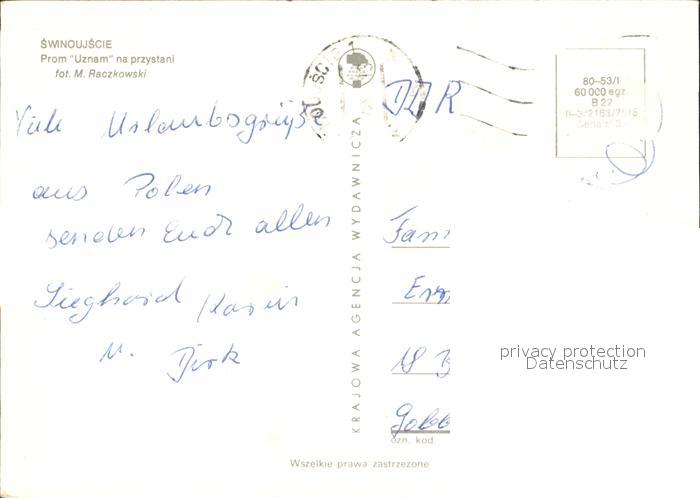 ŚWINOUJŚCIE
Prom "Uznam" na przystani
fot. M. Raczkowski
Viele Urlaubsgrüße
aus Polen
senden Euch allen
Sieghard Karin
u. Dirk
KRAJOWA AGENCJA WYDAWNICZA
DDR
80–53/I
60 000 egz.
B 22
Fam
privacy protection
Datenschutz
ozn. kod.
Wszelkie prawa zastrzeżone